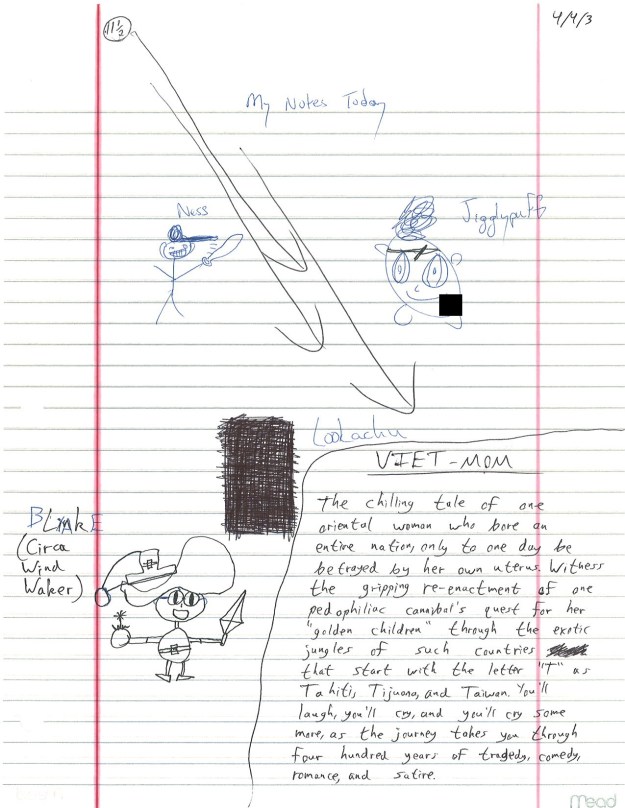 11½
4/4/3
My Notes Today
Ness
Jigglypuff
Lookachu
VIET-MOM
The chilling tale of one
oriental woman who bore an
entire nation, only to one day be
betrayed by her own uterus. Witness
the gripping re-enactment of one
pedophiliac cannibal's quest for her
"golden children" through the exotic
jungles of such countries
that start with the letter "T" as
Tahiti, Tijuana, and Taiwan. You'll
laugh, you'll cry, and you'll cry some
more, as the journey takes you through
four hundred years of tragedy, comedy,
romance, and satire.
(Circa
Wind
Waker)
Mead